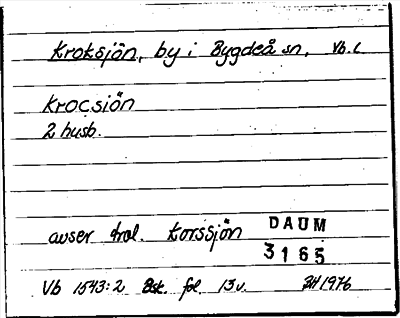 Kroksjön, by i Bygdeå sn, Vb. l
Krocsiön
2 husb.
avser trol. Korssjön DAUM
3165
Vb 1543:2 Bsk. fol. 13v. BH 1976